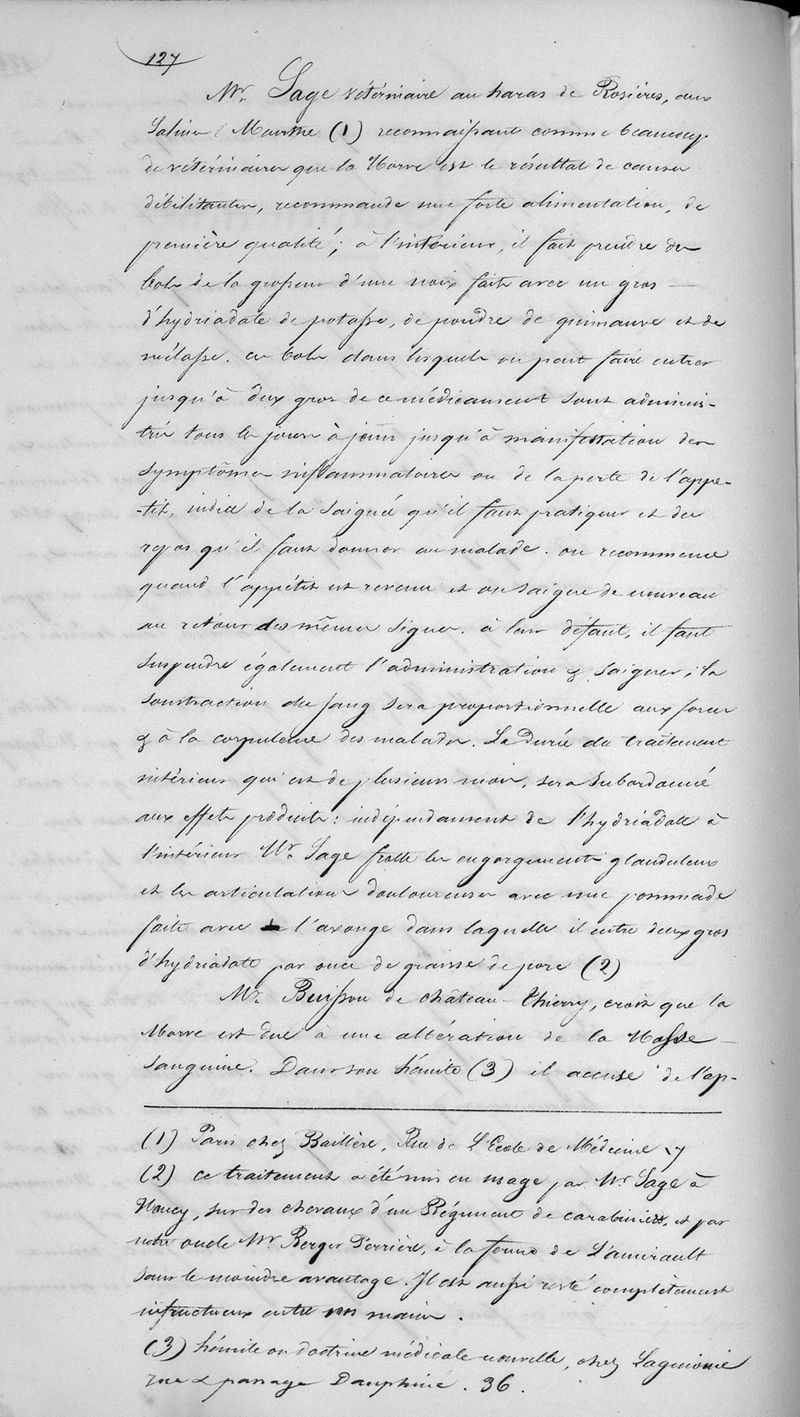 127
Mr. Sage vétérinaire au haras de Rosières, aux
Salines (Meurthe (1) reconnaissant comme beaucoup
de vétérinaires que la Morve est le résultat de causes
débilitantes, recommande une forte alimentation, de
première qualité; à l'intérieur, il fait prendre des
bols de la grosseur d'une noix faits avec un gros
d'hydriadate de potasse, de poudre de guimauve et de
mélasse. ces bols dans lesquels on peut faire entrer
jusqu'à deux gros de ce médicament sont adminis-
-trés tous les jours à jeun jusqu'à manifestation des
symptômes inflammatoires ou de la perte de l'appé-
-tit, indice de la saignée qu'il faut pratiquer et du
repos qu'il faut donner au malade. on recommence
quand l'appétit est revenu et on saigne de nouveau
au retour des mêmes signes. à leur défaut, il faut
suspendre également l'administration & saigner; la
soustraction du sang sera proportionnelle aux forces
& à la corpulence des malades. La durée du traitement
intérieur qui est de plusieurs mois, sera subordonné
aux effets produits: indépendamment de l'hydriadate à
l'intérieur Mr. Sage frotte les engorgements glanduleux
et les articulations douloureuses avec une pommade
faite avec l'axonge dans laquelle il entre deux gros
d'hydriadate par once de graisse de porc (2)
Mr. Buisson de château-Thierry, croit que la
Morve est due à une altération de la Masse
sanguine. Dans son hémite (3) il accuse de l'ap-
(1) Paris chez Baillère, Rue de L'Ecole de Médecine 17
(2) ce traitement a été mis en usage par Mr. Sage à
Nancy, sur des chevaux d'un Régiment de carabiniers, et par
notre oncle Mr. Berger Perrière, à la ferme de L'amirault
sans le moindre avantage. Il est aussi resté complètement
infructueux entre nos mains.
(3) hémite ou doctrine médicale nouvelle, chez Laguionie
rue & passage Dauphine. 36.